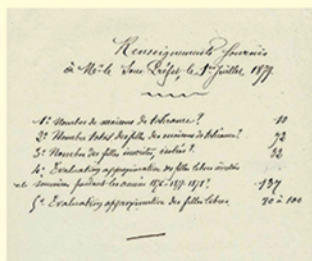 Renseignements fournis
à Mr le Sous Préfet, le 1er Juillet 1879.
1° Nombre de maisons de tolérance? 10
2° Nombre total des filles des maisons de tolérance? 72
3° Nombre des filles inscrites, isolées? 32
4° Evaluation approximative des filles libres arrêtées
et soumises pendant les années 1876-1877-1878? 137
5° Evaluation approximative des filles libres. 70 à 100